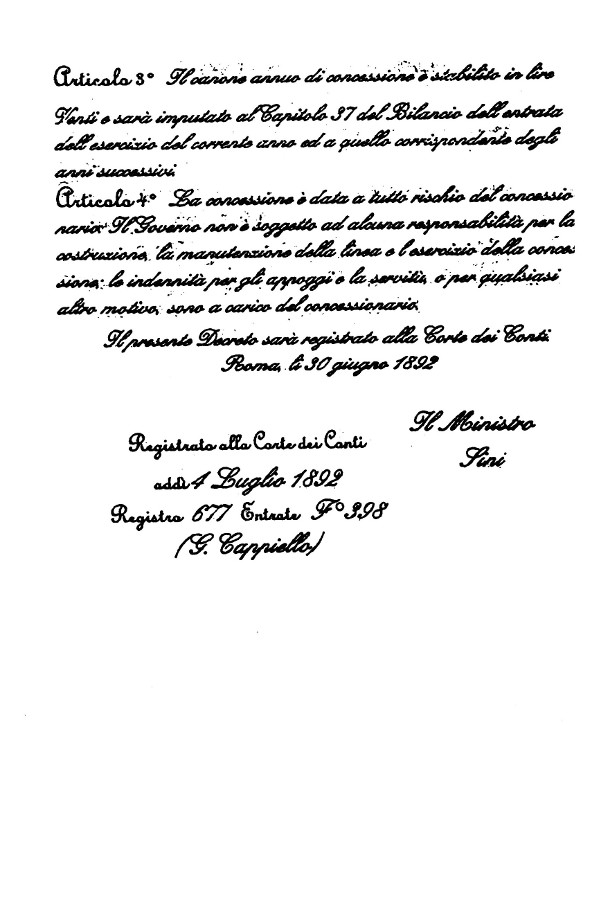 Articolo 3° Il canone annuo di concessione è stabilito in lire
Venti e sarà imputato al Capitolo 37 del Bilancio dell'entrata
dell'esercizio del corrente anno ed a quello corrispondente degli
anni successivi.
Articolo 4° La concessione è data a tutto rischio del concessio
nario. Il Governo non è soggetto ad alcuna responsabilità per la
costruzione, la manutenzione della linea e l'esercizio della conces
sione; le indennità per gli appoggi e la servitù, o per qualsiasi
altro motivo, sono a carico del concessionario.
Il presente Decreto sarà registrato alla Corte dei Conti.
Roma, lì 30 giugno 1892
Il Ministro
Sini
Registrato alla Corte dei Conti
addì 4 Luglio 1892
Registro 677 Entrate F° 398
(G. Cappiello)